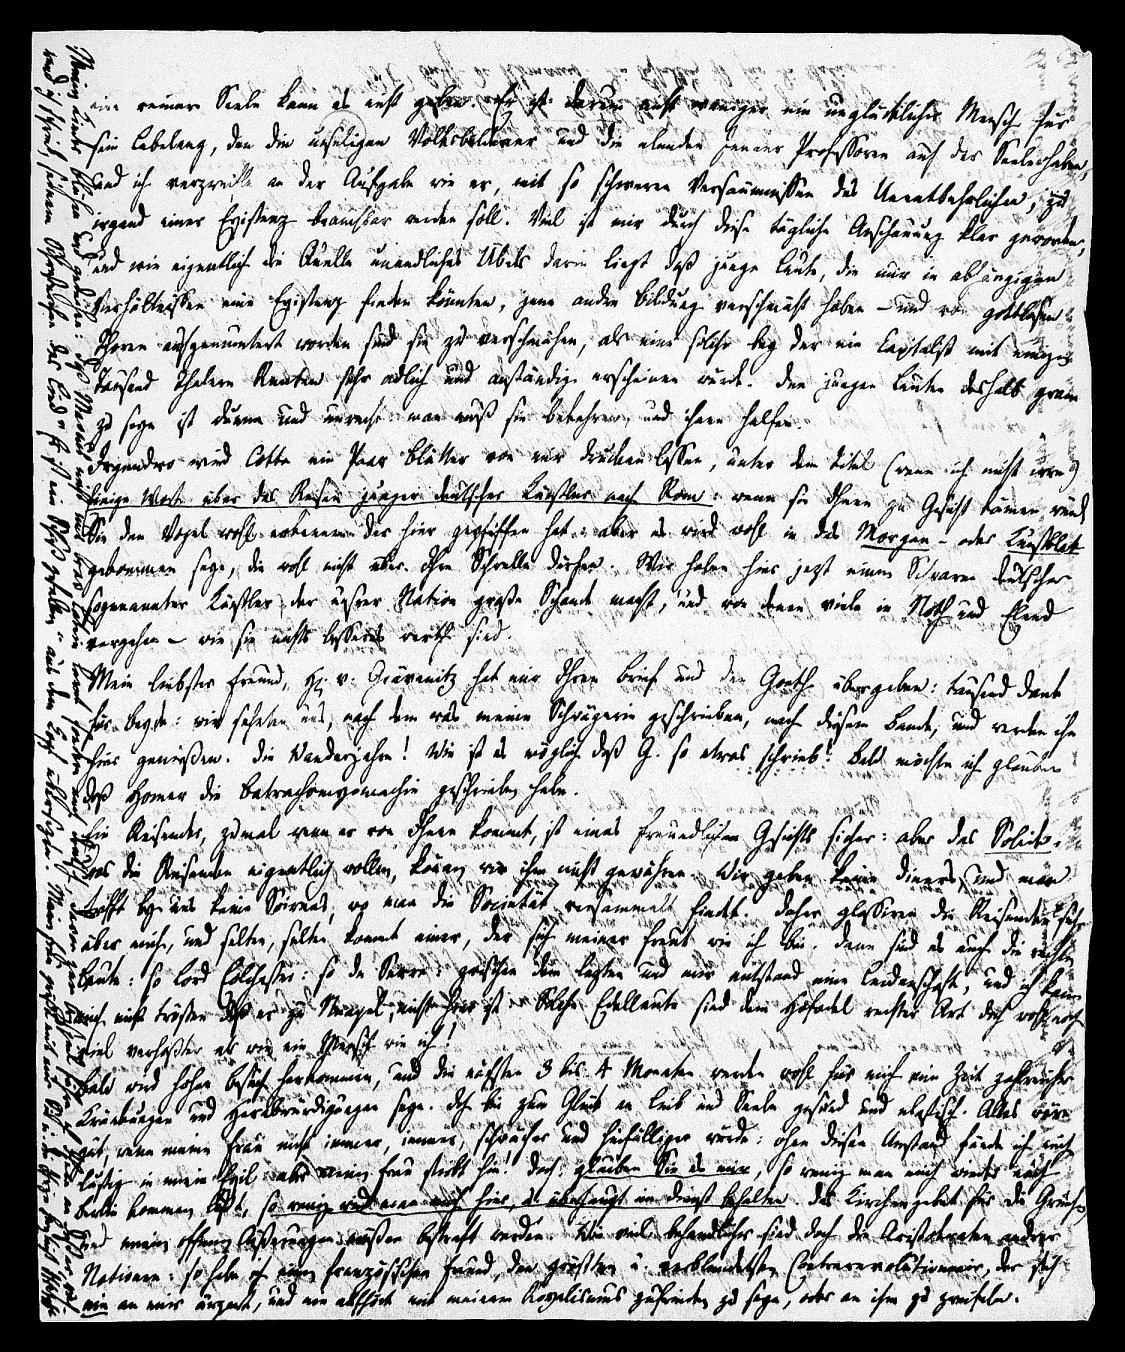 eine reiner Seele kann es nicht geben. Er ist darum nicht weniger ein unglücklicher Mensch für
sein Lebelang, den die unseligen Volksbildner und die elenden Jenaer Professoren auf der Seele haben,
und ich verzweifle an der Aufgabe wie er, mit so schweren Versäumnissen des Unentbehrlichen, zu
irgend einer Existenz brauchbar werden soll. Viel ist mir durch diese tägliche Anschauung klar geworden,
und wie eigentlich die Quelle unendliches Übels darin liegt daß junge Leute, die nur in abhängigen
Verhältnissen eine Existenz finden könnten, jene andre Bildung verschmäht haben – und von gottlosen
Thoren aufgemuntert worden sind sie zu verschmähen, als eine solche bey der ein Capitalist mit einigen
Tausend Thalern Renten sehr adlich und anständig erscheinen würde. Den jungen Leuten deshalb gram
zu seyn ist dumm und unrecht: man muß sie bekehren und ihnen helfen.
Irgendwo wird Cotta ein Paar Blätter von mir drucken lassen, unter dem Titel (wenn ich nicht irre)
einige Worte über das Reisen junger deutscher Künstler nach Rom: wenn sie Ihnen zu Gesicht kämen würden
Sie den Vogel wohl erkennen der hier gepfiffen hat: aber es wird wohl in das Morgen- oder Kunstblatt
gekommen seyn, die wohl nicht über Ihre Schwelle dürfen. Wir haben hier jetzt einen Schwarm deutscher
sogenannter Künstler der unsrer Nation große Schande macht, und von denen viele in Noth und Elend
vergehen – wie sie nichts besseres werth sind.
Mein liebster Freund, H. v. Grävenitz hat mir Ihren Brief und den Goethe übergeben: tausend Dank
für beyde: wir sehnten uns, nach dem was meine Schwägerin geschrieben, nach diesem Bande, und werden ihn
hier genießen. Die Wanderjahre! Wie ist es möglich daß G. so etwas schrieb! Bald möchte ich glauben
daß Homer die Batrachomyomachie geschrieben habe.
Ein Reisender, zumal wenn er von Ihnen kommt, ist eines freundlichen Gesichts sicher: aber das Solide,
was die Reisenden eigentlich wollen, können wir ihm nicht gewähren. Wir geben keine diners, und man
trifft bey uns keine Soireen, wo man die Societät versammelt findet. Daher glossiren die Reisenden sich
über mich, und selten, selten kommt einer, der sich meiner freut wie ich bin. Dann sind es auch die rechten
Leute: so Lord Colchester: so de Serre: zwischen dem letzten und mir entstand eine Leidenschaft, und ich kann
mich nicht trösten daß er zu Neapel, nicht hier ist. Solche Edelleute sind dem Hofadel rechter Art doch wohl noch
viel verhaßter als wie ein Mensch wie ich!
Bald wird hoher Besuch herkommen, und die nächsten 3 bis 4 Monate werden wohl für mich eine Zeit zahlreicher
Kränkungen und Herabwürdigungen seyn. Ich bin zum Glück an Leib und Seele gesund und elastisch. Alles wäre
gut, wenn meine Frau nicht immer, immer, schwächer und hinfälliger würde: ohne diesen Umstand fände ich mich
lustig in mein Exil: aber meine Frau stirbt hin! Doch, glauben Sie es mir, so wenig man mich wieder nach
Berlin kommen läßt, so wenig wird man mich hier, u. überhaupt im Dienst behalten. Das Kirchengebet für die Griechen
und meine offenen Äußerungen müßen bestraft werden. Wie viel behandlicher sind doch die Aristokraten andrer
Nationen: so habe ich einen französischen Freund, den größten u. verblendetsten Contrerevolutionair, der sich
nie an mir ärgert, und nie aufhört mit meinem Royalismus zufrieden zu seyn, oder an ihm zu zweifeln.
Meine Kinder blühen und gedeihen: daß Marcus recht viel